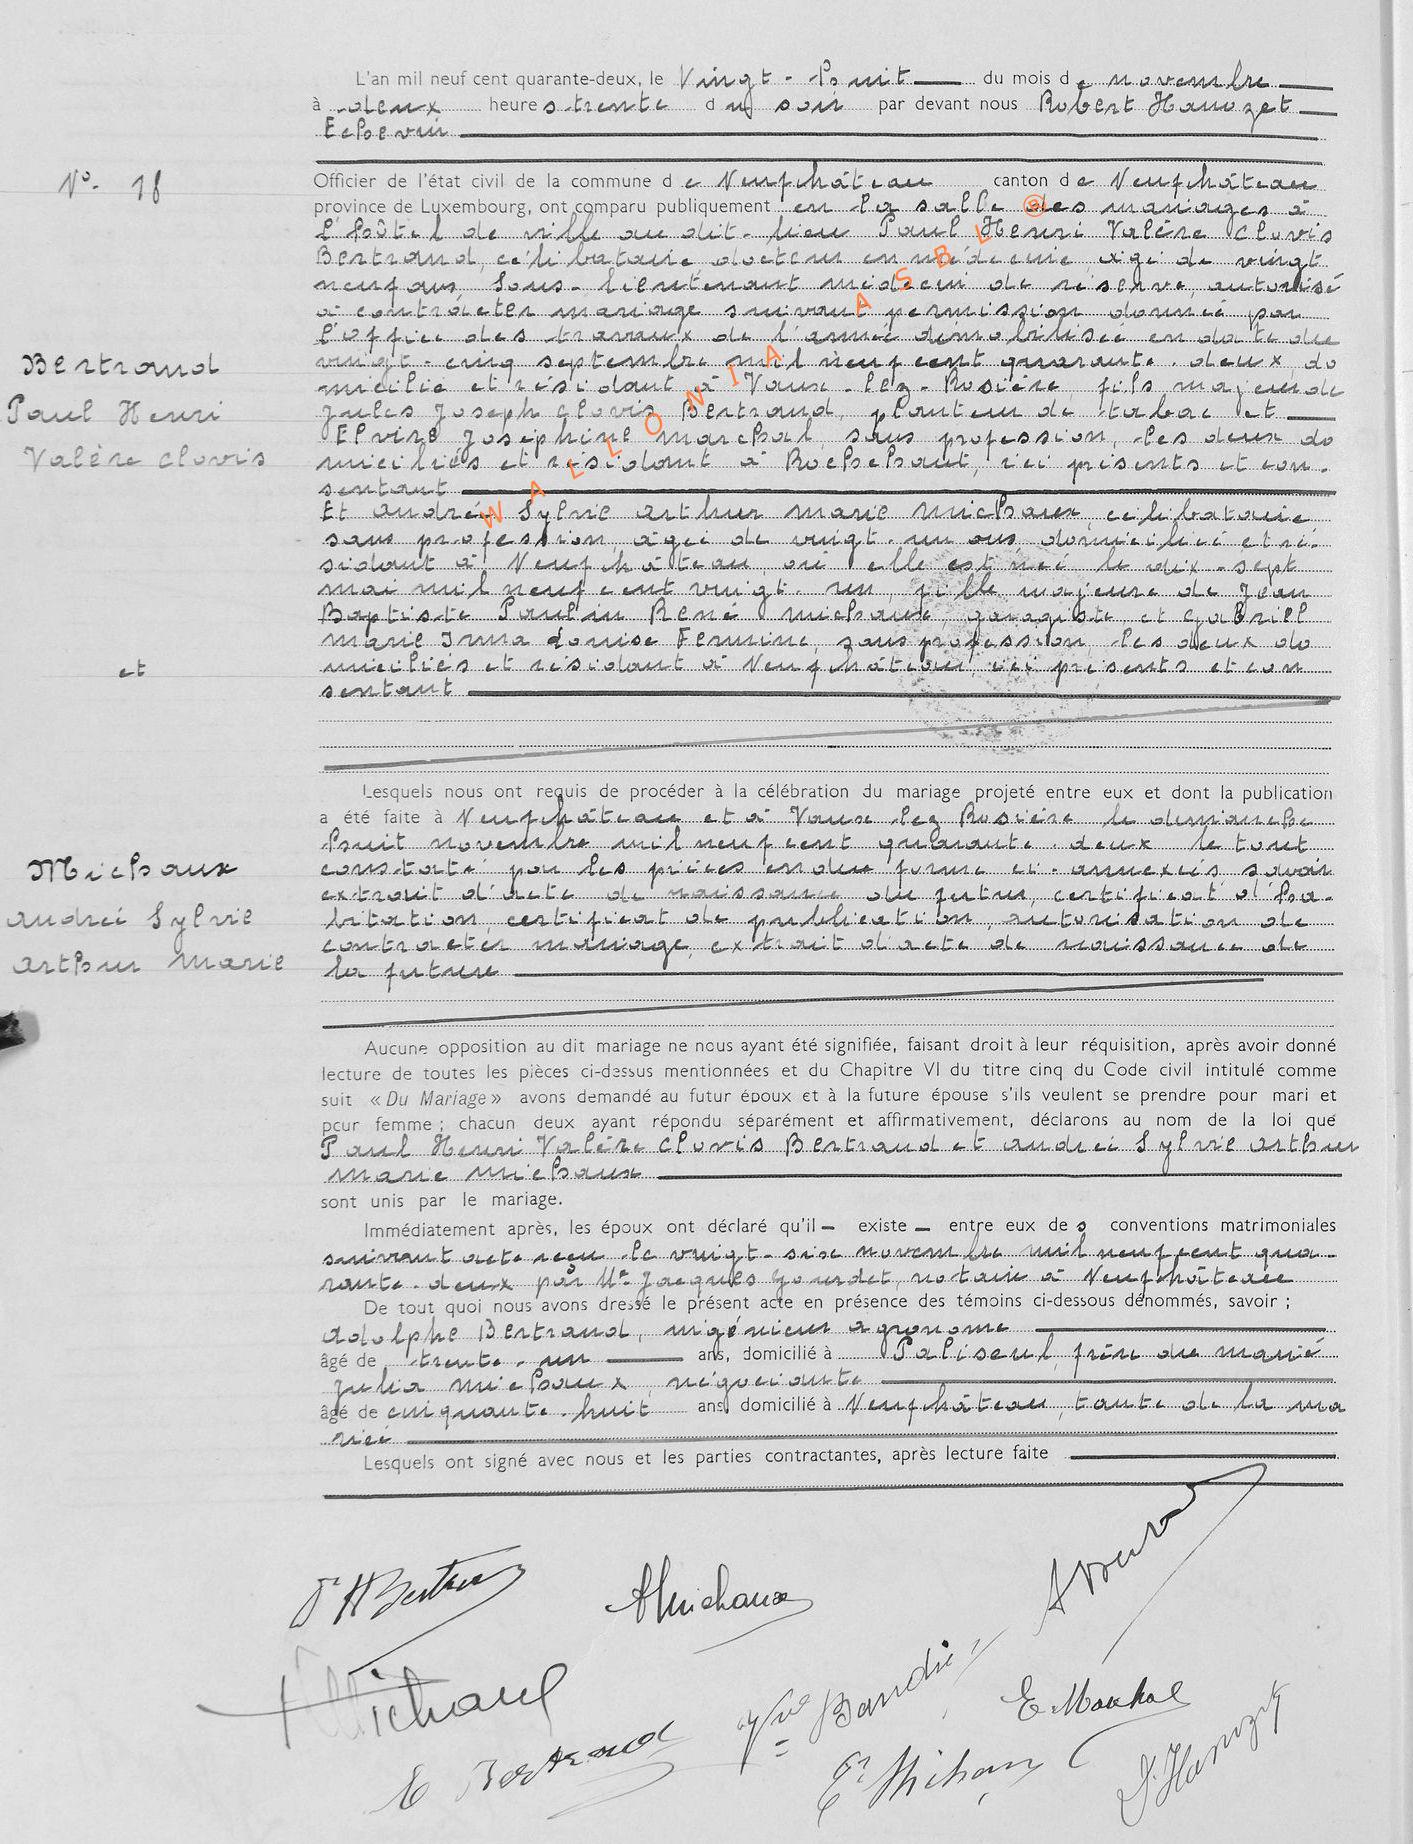 L'an mil neuf cent quarante-deux, le Vingt-huit du mois de novembre
à deux heures trente du soir par devant nous Robert Hanozet
Echevin
N° 18
Officier de l'état civil de la commune de Neufchâteau canton de Neufchâteau
province de Luxembourg, ont comparu publiquement en la salle des mariages à
l'hôtel de ville au dit-lieu Paul Henri Valère Clovis
Bertrand, célibataire, docteur en médecine, agé de vingt
neuf ans, Sous-lieutenant médecin de réserve, autorisé
à contracter mariage suivant permission donnée par
l'office des travaux de l'armée démobilisée en date du
vingt-cinq septembre mil neuf cent quarante-deux, do
micilié et résidant à Vaux-lez-Rosière, fils majeur de
Jules Joseph Clovis Bertrand, planteur de tabac et
Elvire Joséphine Marchal, sans profession, les deux do
miciliés et résidant à Rochehaut, ici présents et con-
sentant
Bertrand
Paul Henri
Valère Clovis
Et Andrée Sylvie Arthur Marie Michaux, célibataire
sans profession, agée de vingt-un ans, domiciliée et ré-
sidant à Neufchâteau, où elle est née le dix-sept
mai mil neuf cent vingt-un, fille majeure de Jean
Baptiste Paulin René Michaux, garagiste, et Gabriel
Marie Irma Louise Femmine, sans profession, les deux do
miciliés et résidant à Neufchâteau, ici présents et con
sentant
et
WALLONIA ASBL ®
Lesquels nous ont requis de procéder à la célébration du mariage projeté entre eux et dont la publication
a été faite à Neufchâteau et à Vaux lez Rosière le dimanche
huit novembre mil neuf cent quarante-deux le tout
constaté par les pièces en due forme ci-annexées savoir
extrait d'acte de naissance du futur, certificat d'ha-
bitation, certificat de publication, autorisation de
contracter mariage, extrait d'acte de naissance de
la future
Michaux
Andrée Sylvie
Arthur Marie
Aucune opposition au dit mariage ne nous ayant été signifiée, faisant droit à leur réquisition, après avoir donné
lecture de toutes les pièces ci-dessus mentionnées et du Chapitre VI du titre cinq du Code civil intitulé comme
suit « Du Mariage » avons demandé au futur époux et à la future épouse s'ils veulent se prendre pour mari et
pour femme ; chacun deux ayant répondu séparément et affirmativement, déclarons au nom de la loi que
Paul Henri Valère Clovis Bertrand et Andrée Sylvie Arthur
Marie Michaux
sont unis par le mariage.
Immédiatement après, les époux ont déclaré qu'il – existe – entre eux des conventions matrimoniales
suivant acte reçu le vingt-six novembre mil neuf cent qua-
rante-deux par Me Jacques Gourdet, notaire à Neufchâteau
De tout quoi nous avons dressé le présent acte en présence des témoins ci-dessous dénommés, savoir ;
Adolphe Bertrand, ingénieur agronome
âgé de trente-un ans, domicilié à Paliseul, frère du marié
Julia Michaux, négociante
âgé de cinquante-huit ans, domicilié à Neufchâteau, tante de la ma
riée
Lesquels ont signé avec nous et les parties contractantes, après lecture faite
PHBertrand
AMichaux
Michaux
E Marchal
E Bertrand
Michaux
R. Hanozet